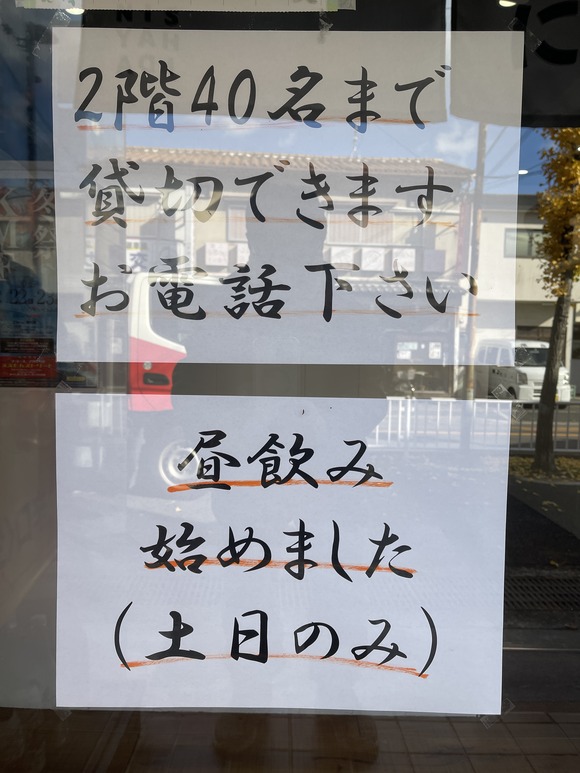 2階40名まで
貸切できます
お電話下さい
昼飲み
始めました
(土日のみ)